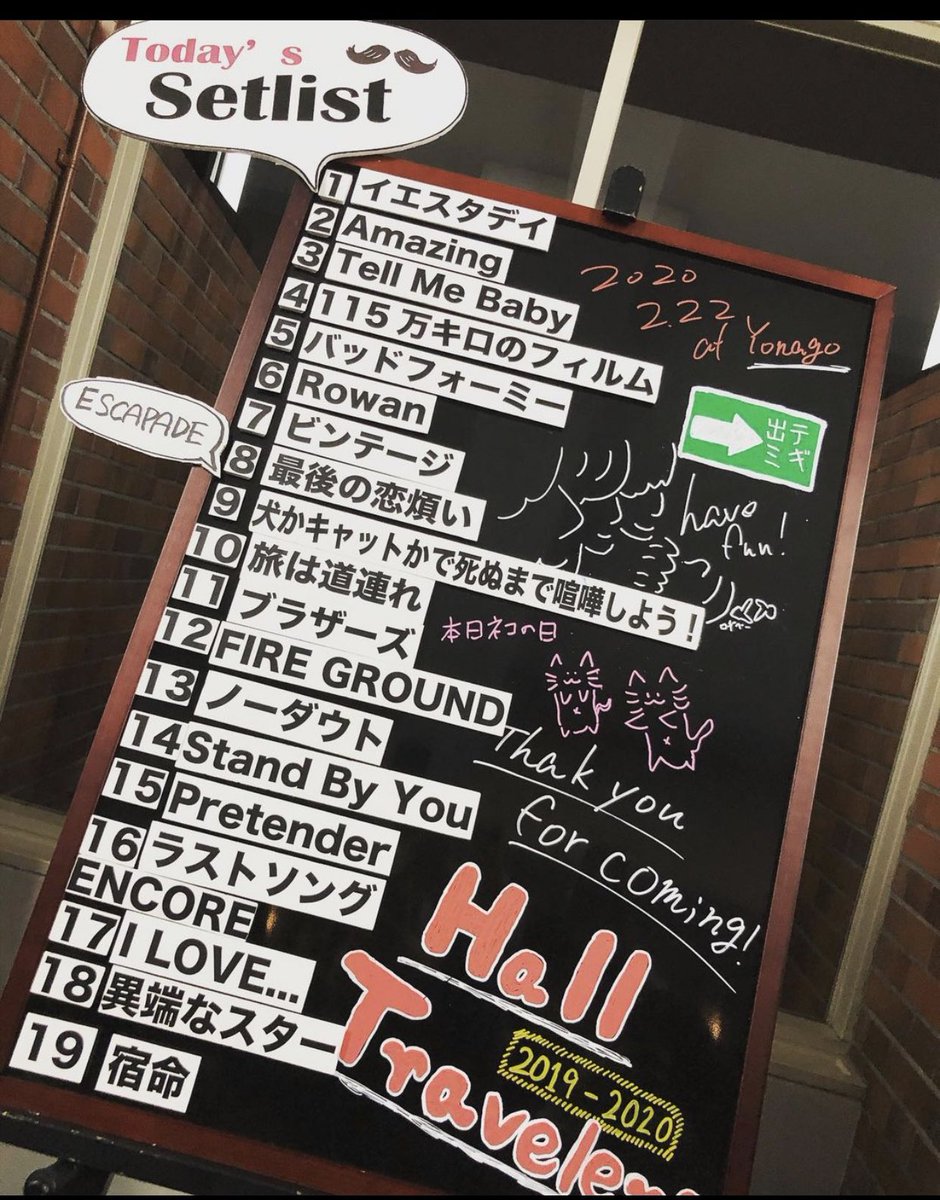 Today's
Setlist
1 イエスタデイ
2 Amazing
3 Tell Me Baby
4 115万キロのフィルム
5 バッドフォーミー
6 Rowan
7 ビンテージ
ESCAPADE
8 最後の恋煩い
9 犬かキャットかで死ぬまで喧嘩しよう！
10 旅は道連れ
11 ブラザーズ
12 FIRE GROUND
13 ノーダウト
14 Stand By You
15 Pretender
16 ラストソング
ENCORE
17 I LOVE...
18 異端なスター
19 宿命
2020
2.22
at Yonago
出テ
ミギ
have
fun!
本日ネコの日
Thak you
for coming!
Hall
Traveler
2019-2020